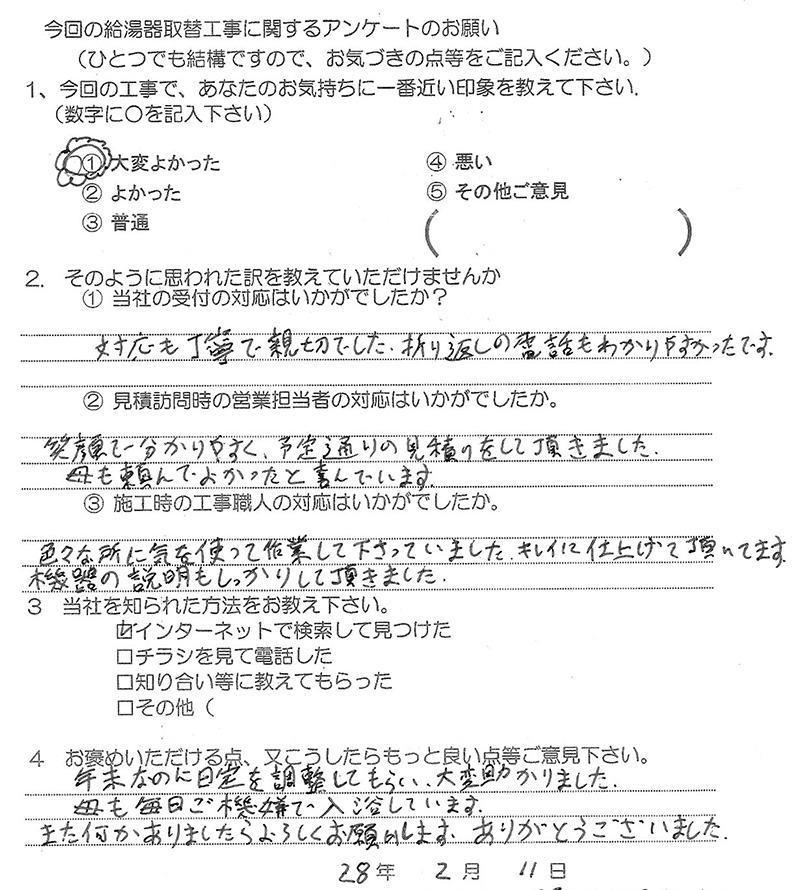 今回の給湯器取替工事に関するアンケートのお願い
(ひとつでも結構ですので、お気づきの点等をご記入ください。)
1、今回の工事で、あなたのお気持ちに一番近い印象を教えて下さい.
(数字に〇を記入下さい)
① 大変よかった ④ 悪い
② よかった ⑤ その他ご意見
③ 普通 ( )
2. そのように思われた訳を教えていただけませんか
① 当社の受付の対応はいかがでしたか？
対応も丁寧で親切でした.折り返しの電話もわかりやすかったです.
② 見積訪問時の営業担当者の対応はいかがでしたか。
笑顔で分かりやすく、予定通りの見積りをして頂きました.
母も頼んでよかったと喜んでいます.
③ 施工時の工事職人の対応はいかがでしたか。
色々な所に気を使って作業して下さっていました.キレイに仕上げて頂いてます
機器の説明もしっかりして頂きました.
3 当社を知られた方法をお教え下さい。
☑インターネットで検索して見つけた
□チラシを見て電話した
□知り合い等に教えてもらった
□その他（
4 お褒めいただける点、又こうしたらもっと良い点等ご意見下さい。
年末なのに日定を調整してもらい、大変助かりました.
母も毎日ご機嫌で入浴しています.
また何かありましたらよろしくお願いします.ありがとうございました.
28年 2月 11日